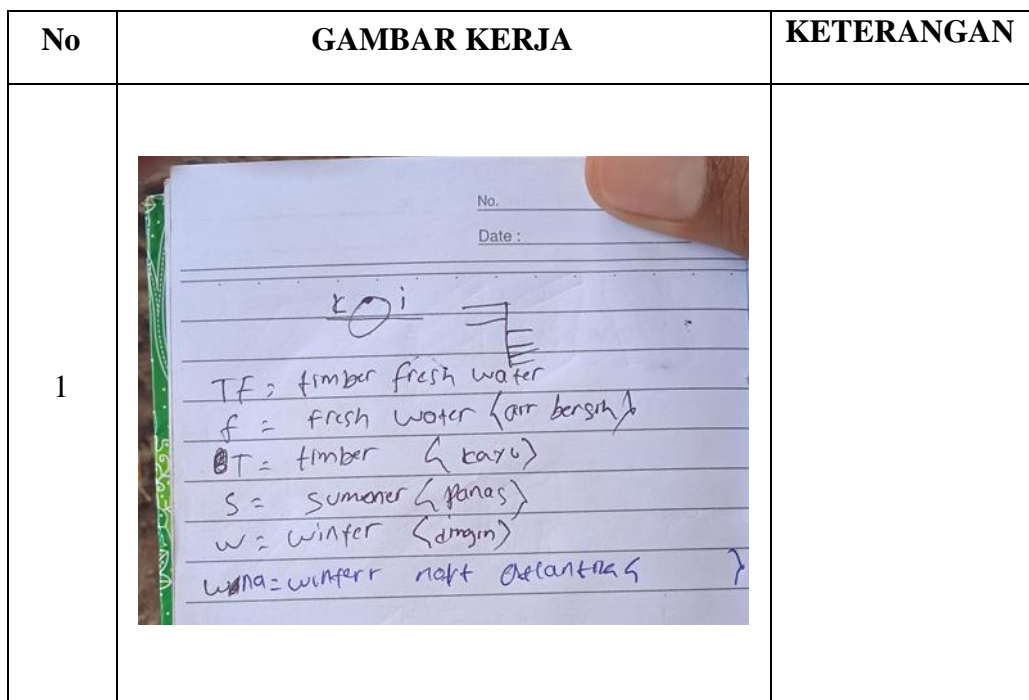 No GAMBAR KERJA KETERANGAN
1
No.
Date :
K i
TF = timber fresh water
f = fresh water (air bersih)
T = timber (kayu)
S = summer (panas)
w = winter (dingin)
wna = winterr nort Atlantna ( )